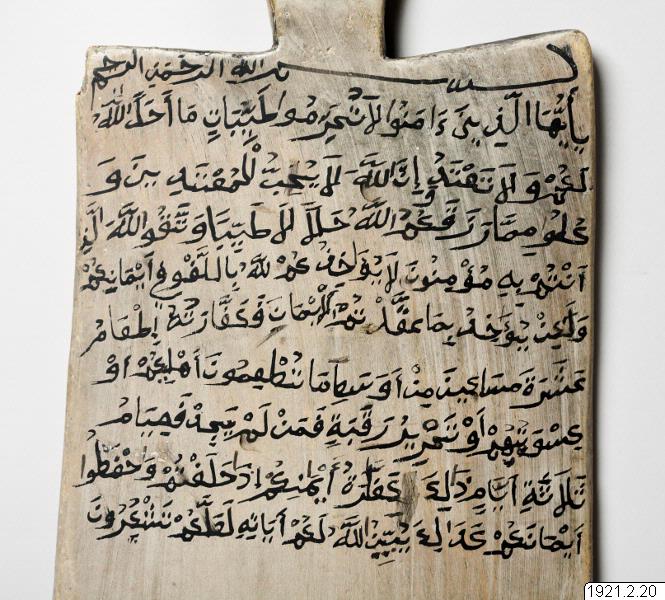 بسم الله الرحمن الرحيم
يأيها الذين ءامنوا لا تحرموا طيبات ما أحل الله
لكم ولا تعتدوا إن الله لا يحب المعتدين و
كلوا مما رزقكم الله حللا طيبا وتقوا الله الذ
انتم به مؤمنون لا يؤاخذكم الله باللغو في أيمانكم
ولكن يؤاخذ بما عقدتم الأيمان فكفارته إطعام
عشرة مساكين من أوسط ما تطعمون أهليكم أو
كسوتهم أو تحرير رقبة فمن لم يجد فصيام
ثلاثة أيام ذالك كفارة أيمنكم إذا حلفتم وحفظوا
أيمانكم كذالك يبين الله لكم أياته لعلكم تشكرون
1921.2.20